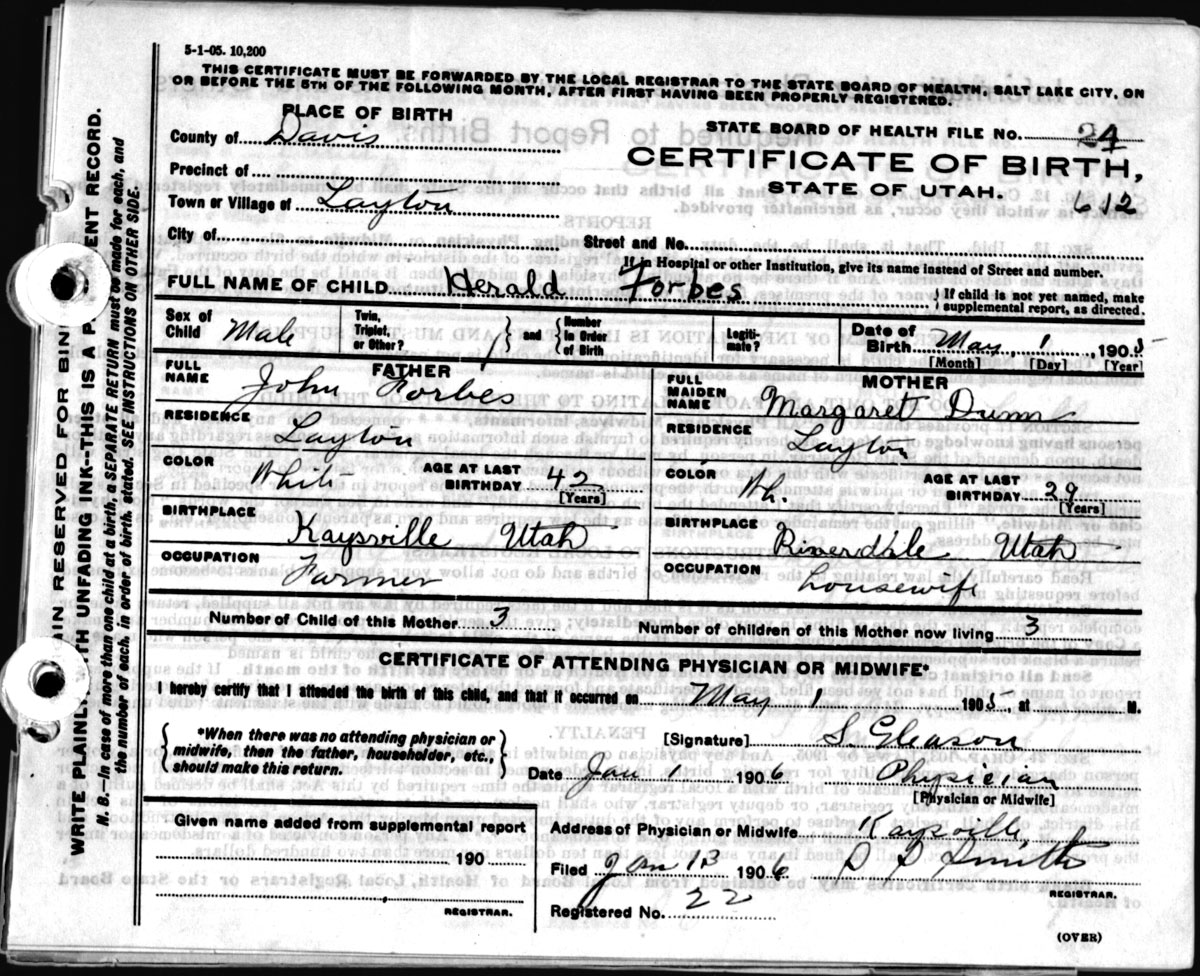 5-1-05. 10,200
THIS CERTIFICATE MUST BE FORWARDED BY THE LOCAL REGISTRAR TO THE STATE BOARD OF HEALTH, SALT LAKE CITY, ON
OR BEFORE THE 5TH OF THE FOLLOWING MONTH, AFTER FIRST HAVING BEEN PROPERLY REGISTERED.
PLACE OF BIRTH
STATE BOARD OF HEALTH FILE No. 24
County of Davis
CERTIFICATE OF BIRTH,
Precinct of
STATE OF UTAH.
612
Town or Village of Layton
City of Street and No.
If in Hospital or other Institution, give its name instead of Street and number.
FULL NAME OF CHILD Herald Forbes { If child is not yet named, make
supplemental report, as directed.
Sex of Child Male
Twin, Triplet, or Other? } and { Number in Order of Birth
Legitimate?
Date of Birth May 1, 1905
[Month] [Day] [Year]
FATHER
FULL NAME John Forbes
RESIDENCE Layton
COLOR White AGE AT LAST BIRTHDAY 42
[Years]
BIRTHPLACE Kaysville Utah
OCCUPATION Farmer
MOTHER
FULL MAIDEN NAME Margaret Dunn
RESIDENCE Layton
COLOR Wh. AGE AT LAST BIRTHDAY 29
[Years]
BIRTHPLACE Riverdale Utah
OCCUPATION housewife
Number of Child of this Mother 3 Number of children of this Mother now living 3
CERTIFICATE OF ATTENDING PHYSICIAN OR MIDWIFE*
I hereby certify that I attended the birth of this child, and that it occurred on May 1 1905, at M.
{ *When there was no attending physician or
midwife, then the father, householder, etc.,
should make this return. }
[Signature] S. Gleason
Date Jan 1 1906. Physician
[Physician or Midwife]
Given name added from supplemental report
190
REGISTRAR.
Address of Physician or Midwife Kaysville,
Filed Jan 13 1906 Smith
REGISTRAR.
Registered No. 22
(OVER)
WRITE PLAINL ITH UNFADING INK--THIS IS A P ENT RECORD.
N. B.--In case of more than one child at a birth, a SEPARATE RETURN must be made for each, and
the number of each, in order of birth, stated. SEE INSTRUCTIONS ON OTHER SIDE.
GIN RESERVED FOR BIN